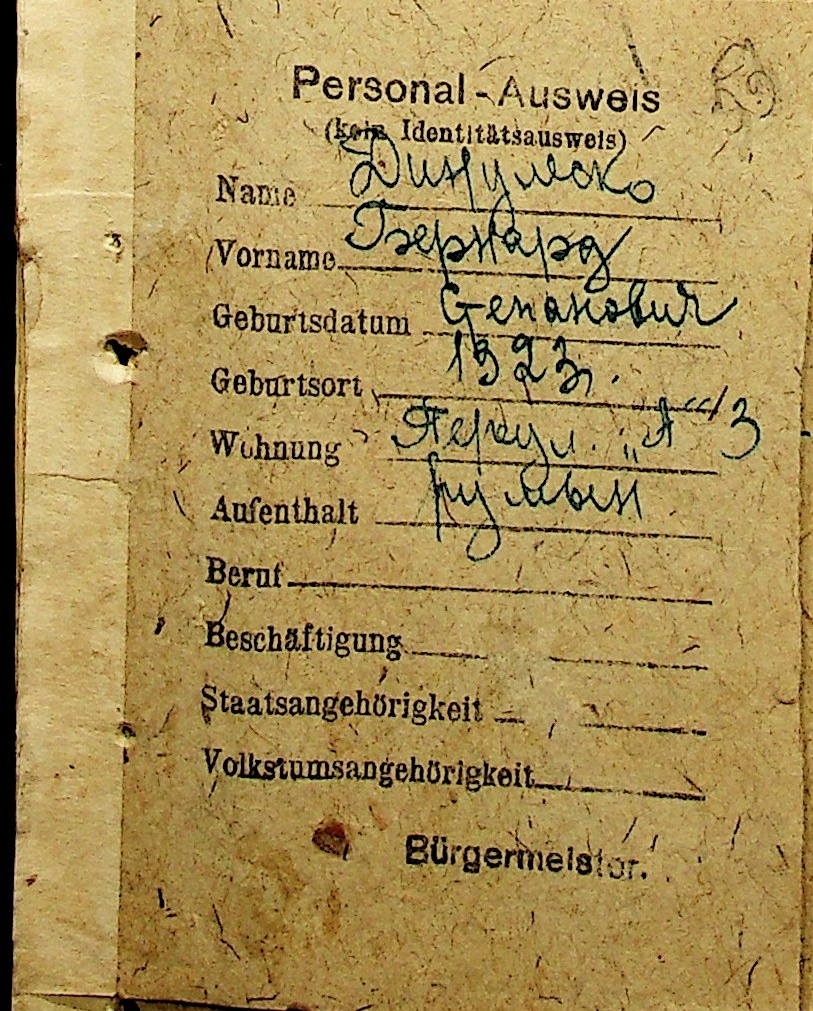 Personal-Ausweis
(kein Identitätsausweis)
Name Динулеско
Vorname Бернард
Geburtsdatum Степанович
Geburtsort 1923.
Wohnung „А“ 3
Aufenthalt румын
Beruf
Beschäftigung
Staatsangehörigkeit
Volkstumsangehörigkeit
Bürgermeister.